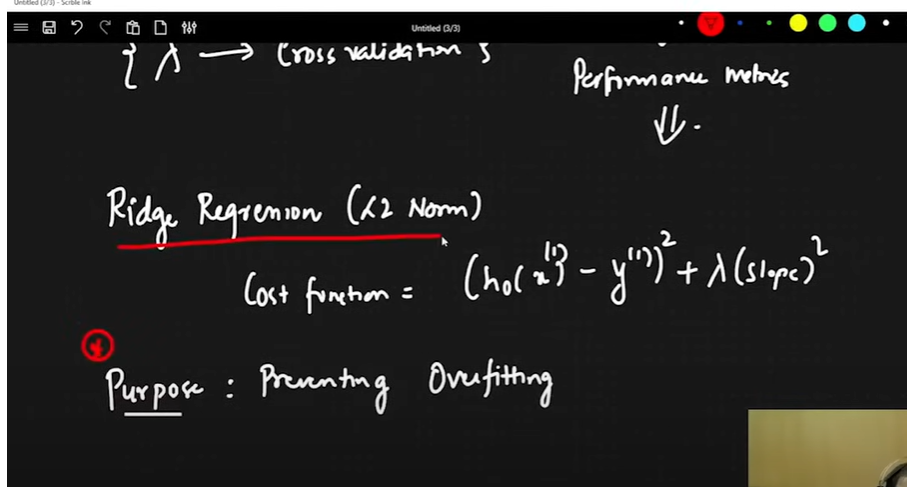 Untitled (3/3) - Scrble Ink
Untitled (3/3)
{ λ → Cross validation }
Performance metrics
Ridge Regression (L2 Norm)
Cost function = (hθ(x⁽ⁱ⁾) - y⁽ⁱ⁾)² + λ(slope)²
Purpose : Preventing Overfitting